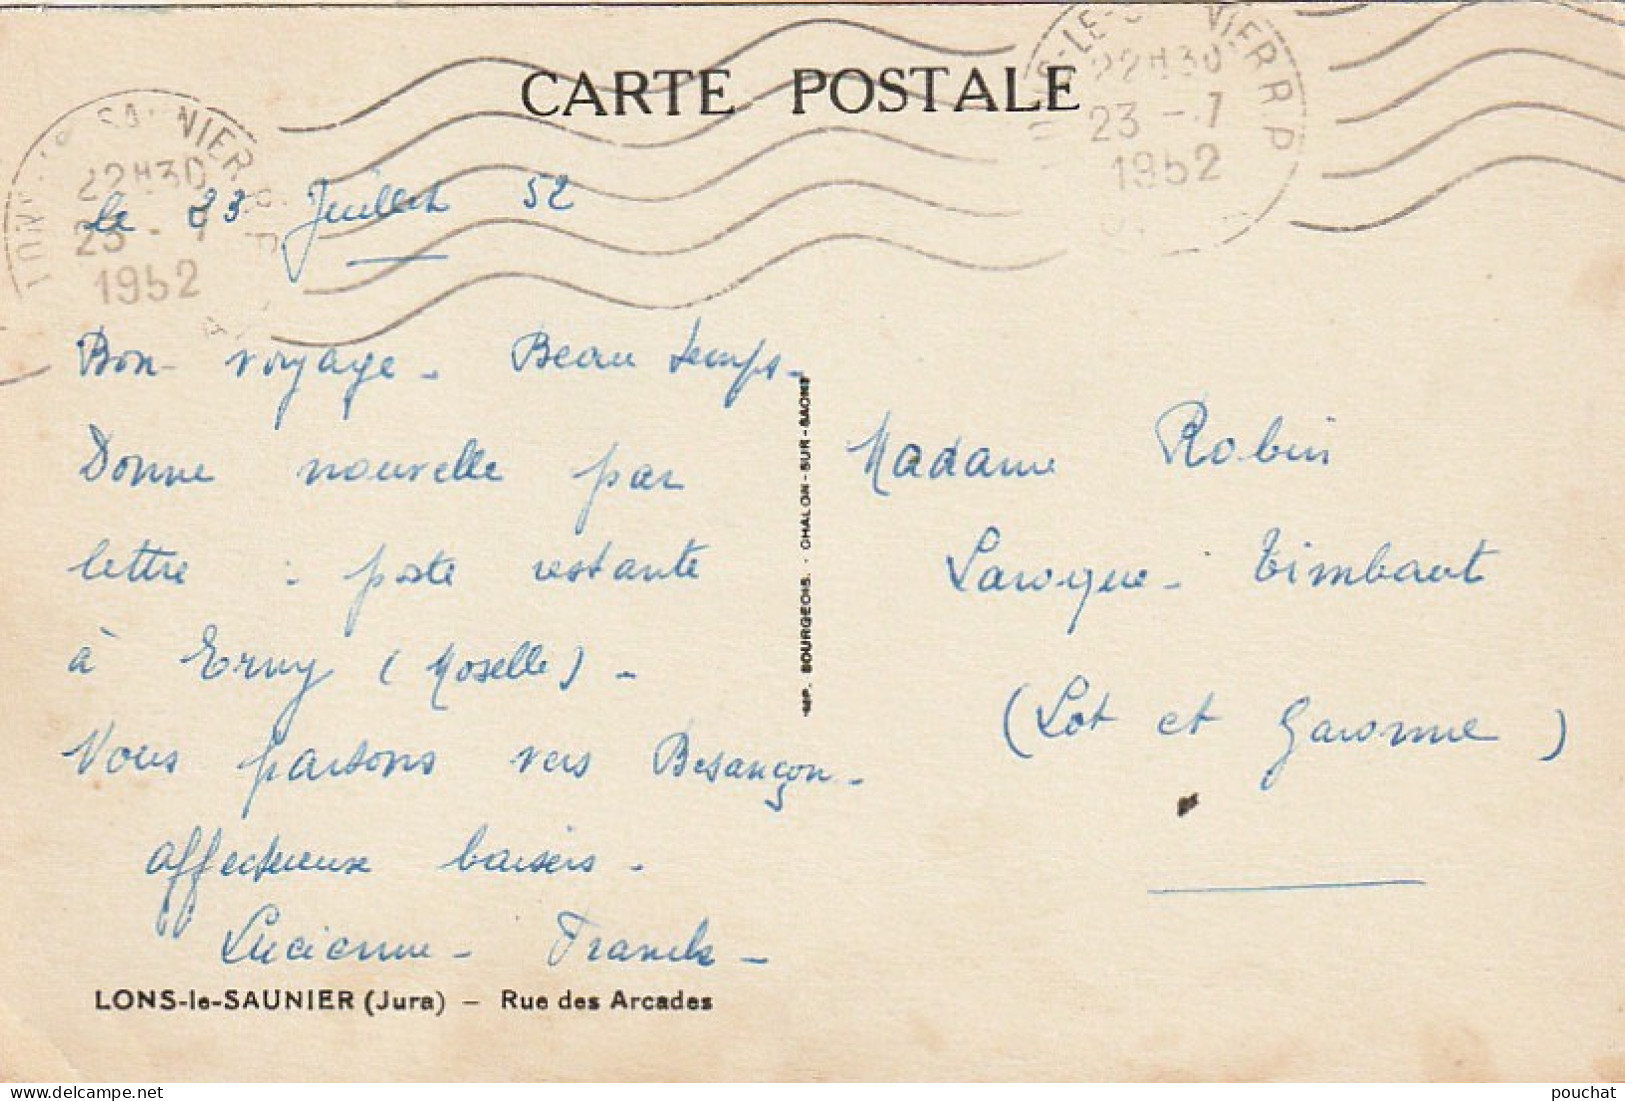 CARTE POSTALE
22H30
23 - 7
1952
SAUNIER R.P
22H30
23 - 7
1952
le 23 Juillet 52
Bon voyage - Beau temps -
Donne nouvelle par
lettre : poste restante
à Erny (Moselle) -
Nous partons vers Besançon -
affectueux baisers -
Lucienne - Franck -
LONS-le-SAUNIER (Jura) – Rue des Arcades
IMP. BOURGEOIS. - CHALON-SUR-SAONE
Madame Robin
Laroque - Timbaut
(Lot et Garonne)
pouchat